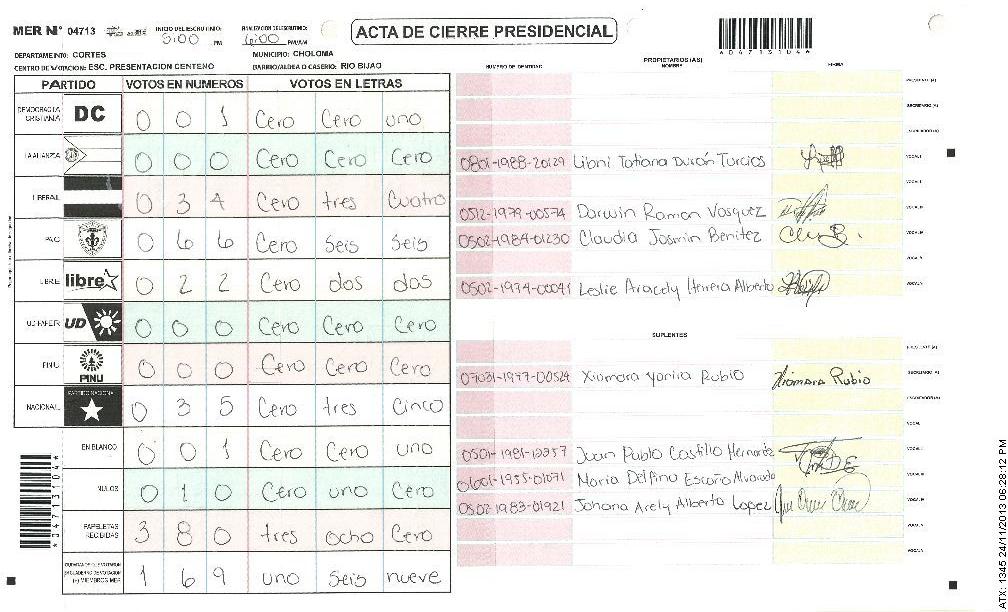 MER N° 04713 INICIO DEL ESCRUTINIO: 5:00 PM FINALIZACION DE ESCRUTINIO: 6:00 PM/AM
ACTA DE CIERRE PRESIDENCIAL
DEPARTAMENTO: CORTES MUNICIPIO: CHOLOMA
CENTRO DE VOTACION: ESC. PRESENTACION CENTENO BARRIO/ALDEA O CASERIO: RIO BIJAO
PARTIDO VOTOS EN NUMEROS VOTOS EN LETRAS
DEMOCRACIA CRISTIANA DC 0 0 1 Cero Cero uno
LA ALIANZA 0 0 0 Cero Cero Cero
LIBERAL 0 3 4 Cero tres Cuatro
PAC 0 6 6 Cero Seis Seis
LIBRE libre 0 2 2 Cero dos dos
UD FAPER UD 0 0 0 Cero Cero Cero
PINU PINU 0 0 0 Cero Cero Cero
NACIONAL PARTIDO NACIONAL 0 3 5 Cero tres Cinco
EN BLANCO 0 0 1 Cero Cero uno
NULOS 0 1 0 Cero uno Cero
PAPELETAS RECIBIDAS 3 8 0 tres ocho Cero
1 6 9 uno seis nueve
*04713104*
NUMERO DE IDENTIDAD PROPIETARIOS (AS) NOMBRE FIRMA
PRESIDENTE (A)
SECRETARIO (A)
ESCRUTADOR (A)
0801-1988-20129 Libni Tatiana Durón Turcios VOCAL I
0512-1979-00574 Darwin Ramon Vasquez
0502-1984-01230 Claudia Jasmin Benitez
0502-1974-00041 Leslie Aracely Herrera Alberto
SUPLENTES
PRESIDENTE (A)
07031-1977-00524 Xiomara Yanira Rubio Xiomara Rubio SECRETARIO (A)
ESCRUTADOR (A)
VOCAL I
0501-1981-12257 Juan Pablo Castillo Hernandz
0601-1955-01071 Maria Delfina Escaño Alvarado
0502-1983-01921 Johana Arely Alberto Lopez
ATX: 1345 24/11/2013 06:28:12 PM